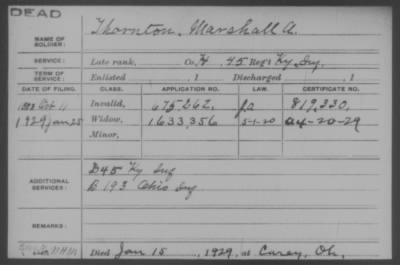 DEAD
NAME OF SOLDIER: Thornton, Marshall A.
SERVICE: Late rank, Co. H, 45 Reg't Ky. Inf.
TERM OF SERVICE: Enlisted , 1 Discharged , 1
DATE OF FILING. CLASS. APPLICATION NO. LAW. CERTIFICATE NO.
Oct 11 Invalid, 675,262, 819,330,
1929 Jan 25 Widow, 1,633,356 5-1-20 a4-20-29
Minor,
ADDITIONAL SERVICES: D 45 Ky Inf
B 193 Ohio Inf
REMARKS:
Died Jan 15, 1929, at Carey, Oh,